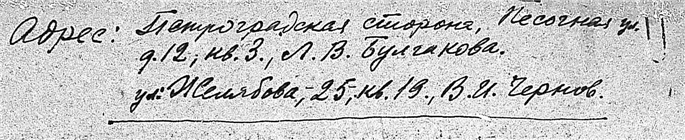 Адрес: Петроградская сторона, Песочная ул.
д.12, кв.3., Л.В. Булгакова.
ул. Желябова, 25, кв.19., В.И. Чернов.